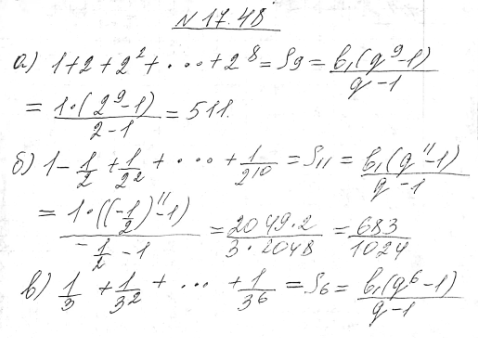 N 17.48
а) 1+2+2²+...+2⁸ = S₉ = b₁(q⁹-1)/(q-1)
= 1·(2⁹-1)/(2-1) = 511.
б) 1 - 1/2 + 1/2² + ... + 1/2¹⁰ = S₁₁ = b₁(q¹¹-1)/(q-1)
= 1·((-1/2)¹¹-1)/(-1/2 - 1) = 2049·2/(3·2048) = 683/1024
в) 1/3 + 1/3² + ... + 1/3⁶ = S₆ = b₁(q⁶-1)/(q-1)